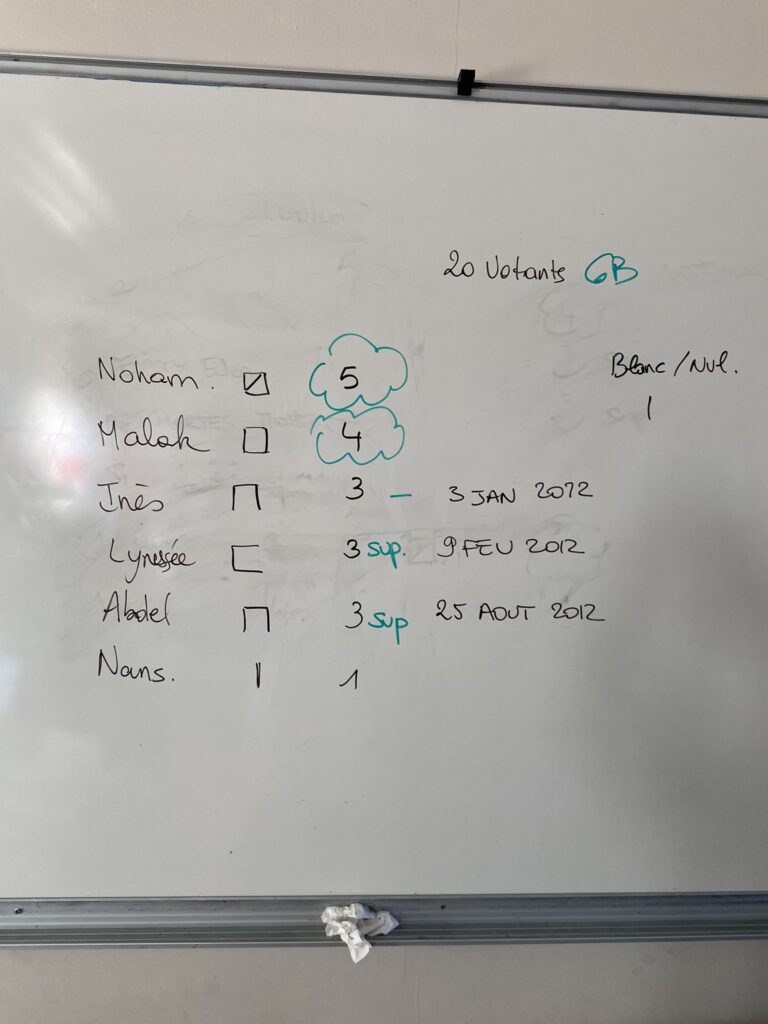 20 Votants 6B
Blanc/Nul.
Noham. 5
Malak 4
Inès 3 – 3 JAN 2012
Lynessée 3 sup. 9 FEV 2012
Abdel 3 sup 25 AOUT 2012
Nans. 1